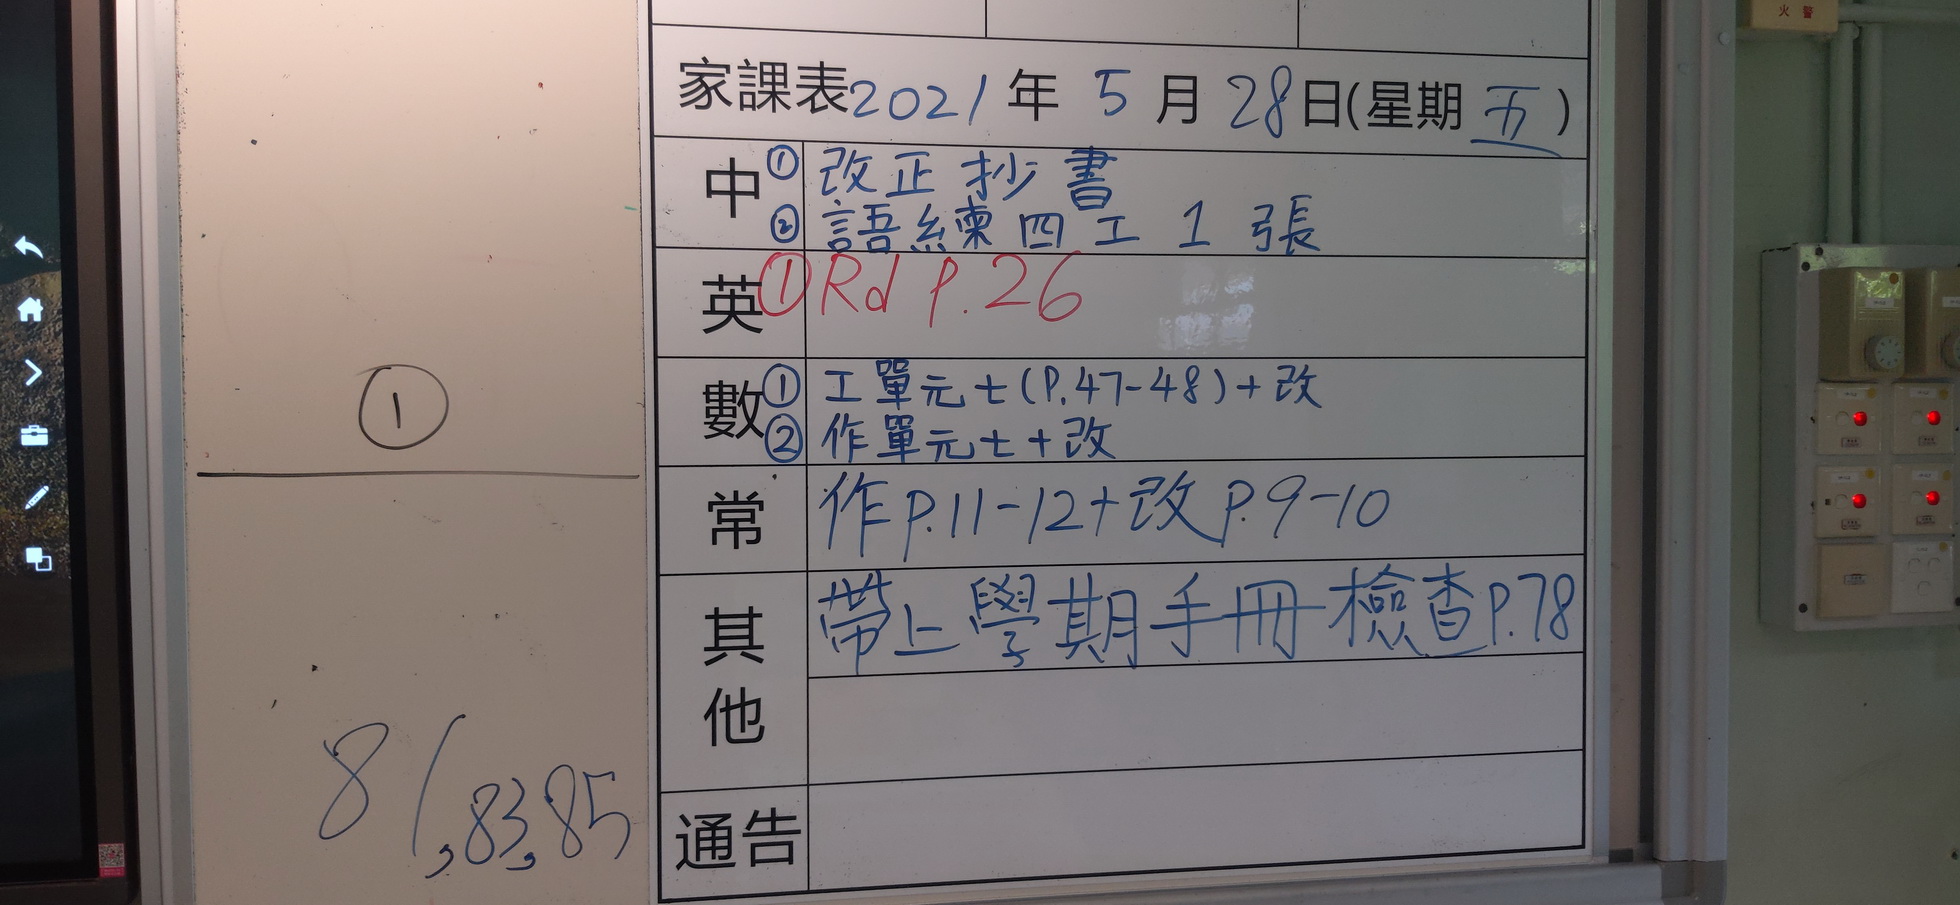 火警
家課表2021年5月28日(星期五)
中
①改正抄書
②語練四工1張
英
①Rd P.26
數
①工單元七(P.47-48)+改
②作單元七+改
常
作P.11-12+改P.9-10
其他
帶上學期手冊檢查P.78
通告
①
81,83,85